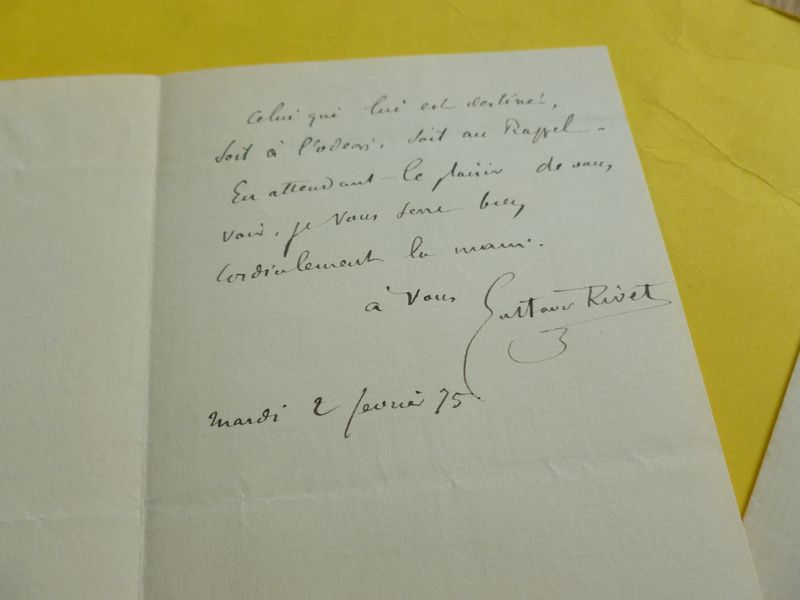 celui qui lui est destiné,
soit à l'odéon, soit au Rappel -
En attendant le plaisir de vous
voir, je vous serre bien
cordialement la main.
à vous Gustave Rivet
mardi 2 février 75.